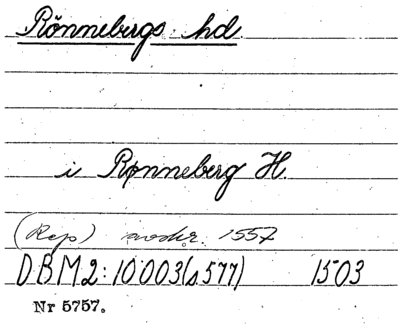 Rönnebergs hd
i Rønneberg H.
(Rep) 1557
DBM2:10003(s577) 1503
Nr 5757.